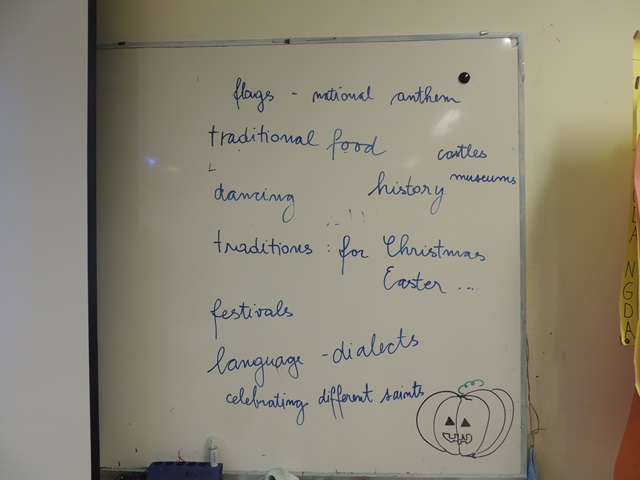 flags - national anthem
traditional food
castles
museums
dancing
history
traditions : for Christmas
Easter ...
festivals
language - dialects
celebrating different saints